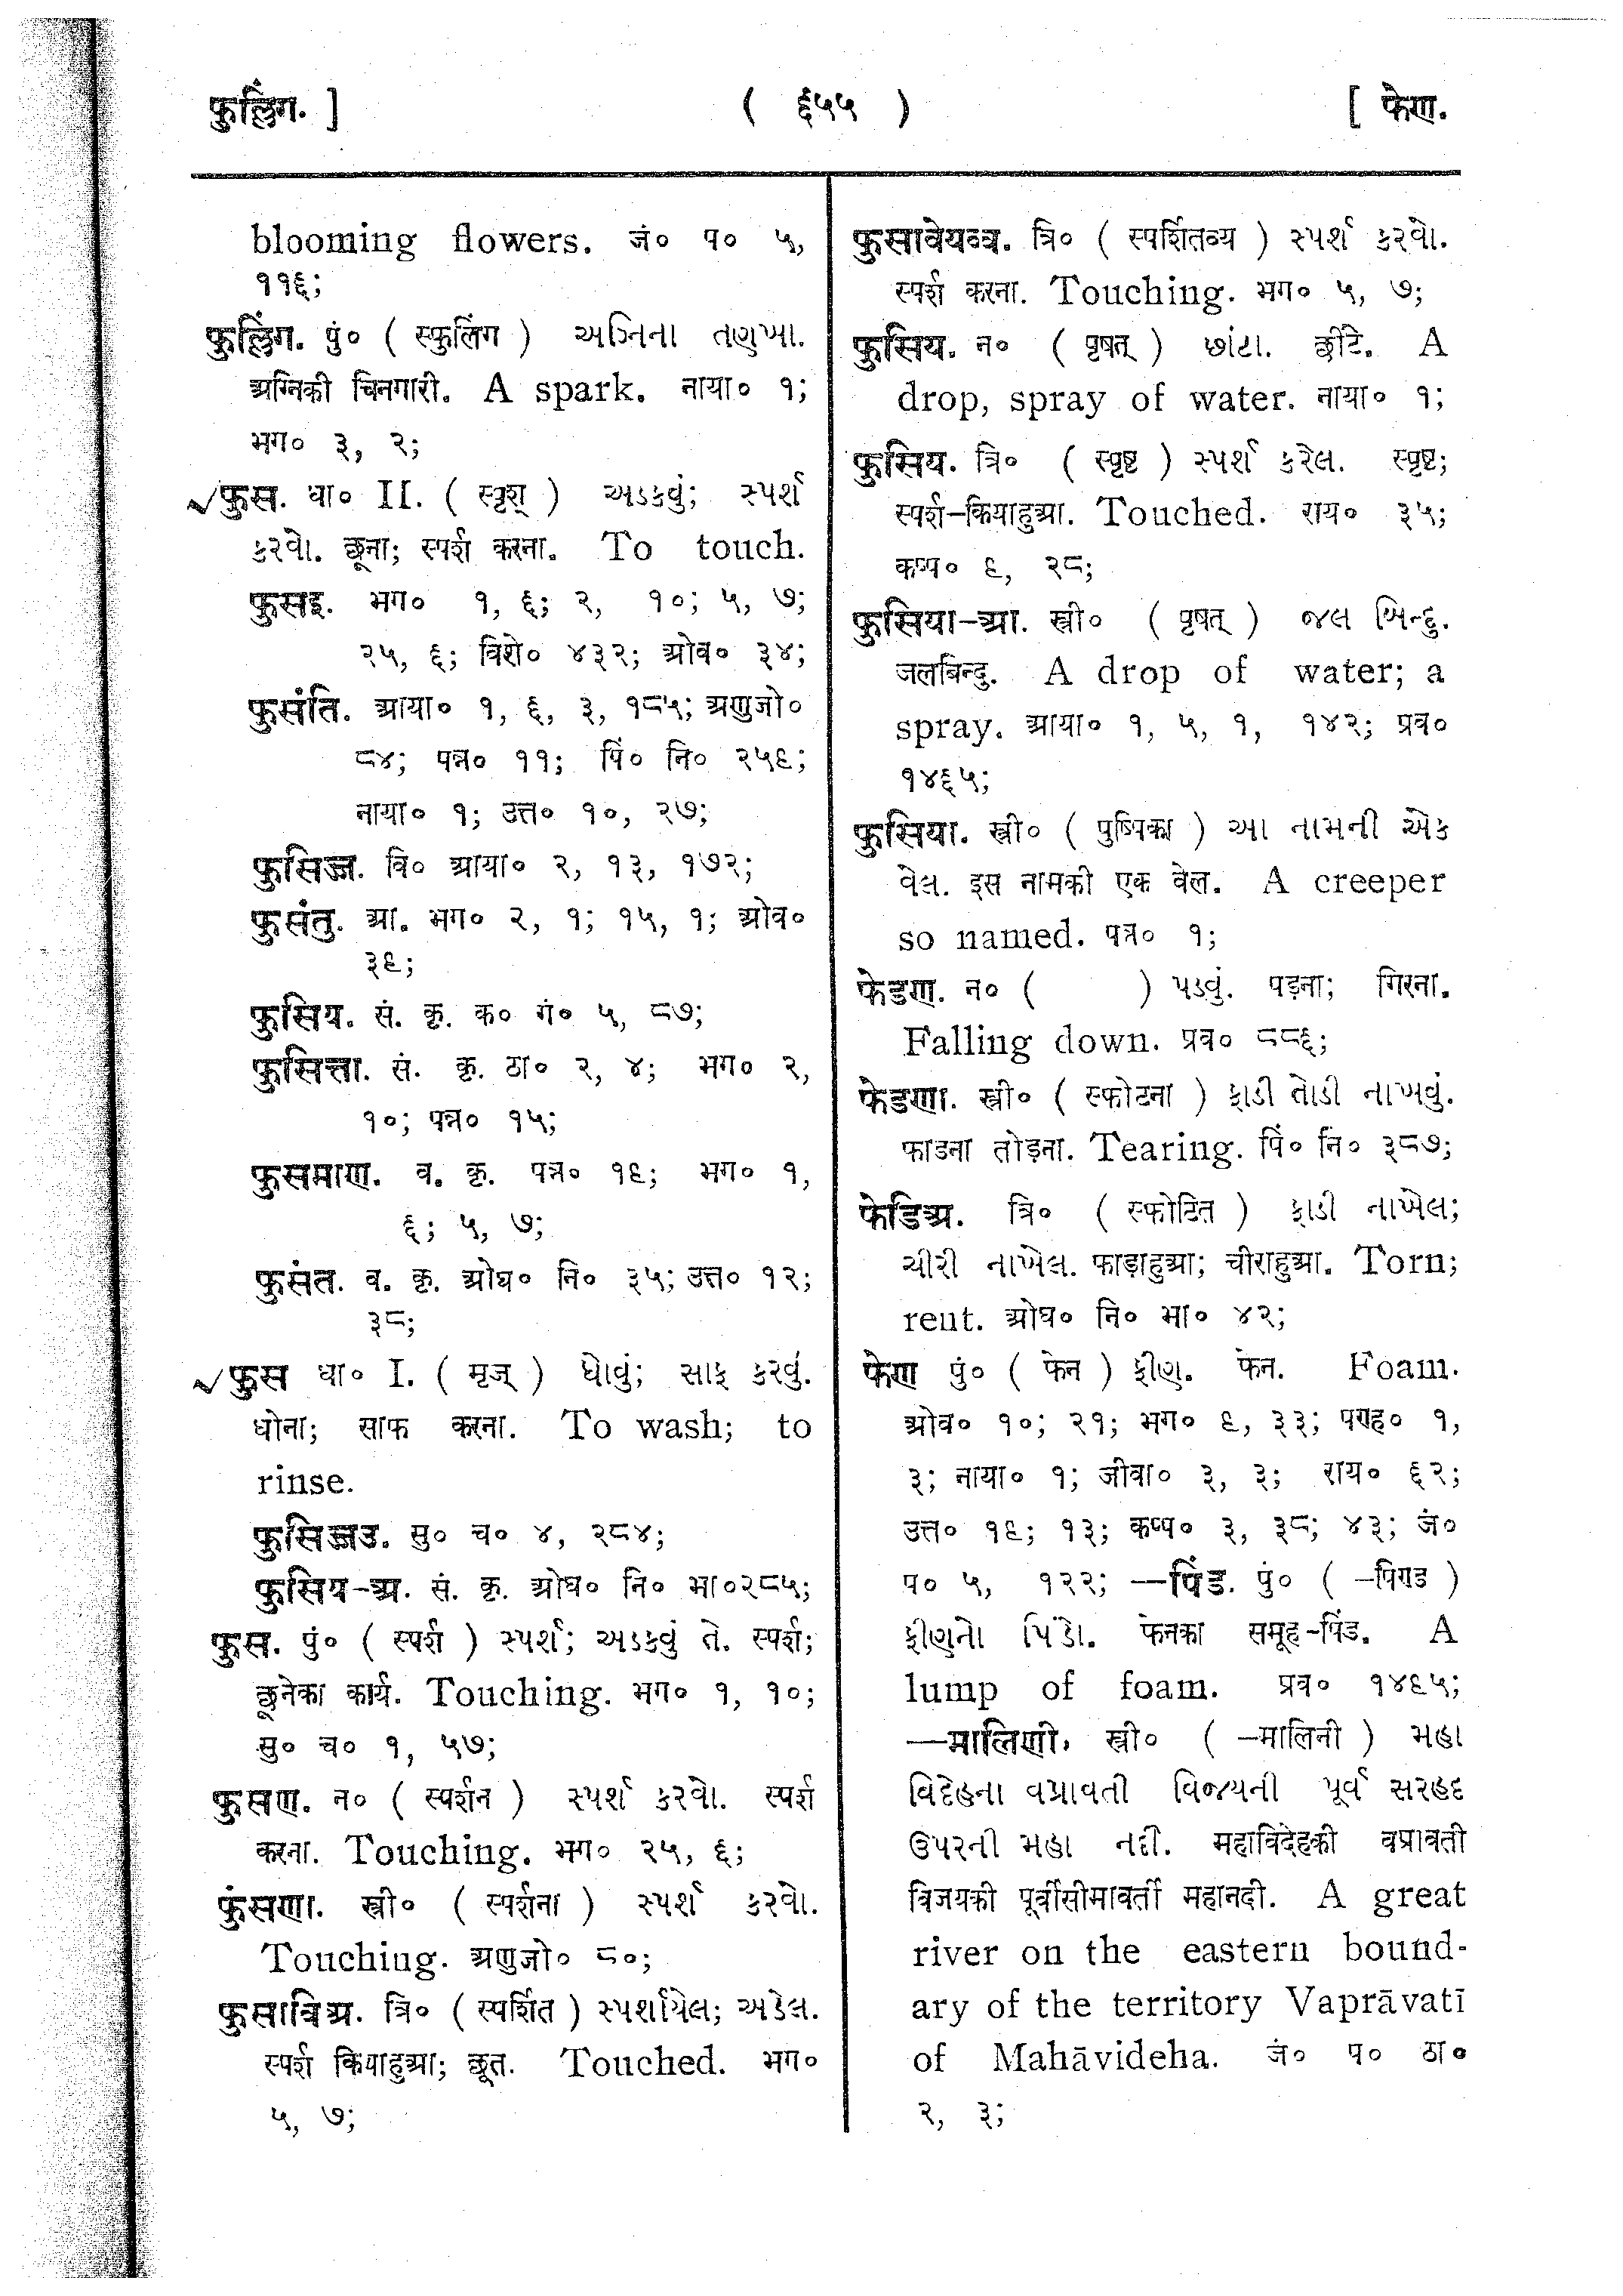 फुलिंग. ] ( ६५५ ) [ फेण.
blooming flowers. जं० प० ५,
११६;
फुलिंग. पुं० ( स्फुलिंग ) અગ્નિના તણખા.
अग्निकी चिनगारी. A spark. नाया० १;
भग० ३, २;
√फुस. धा० II. ( स्पृश् ) અડકવું; સ્પર્શ
કરવો. छूना; स्पर्श करना. To touch.
फुसइ. भग० १, ६; २, १०; ५, ७;
२५, ६; विशे० ४३२; ओव० ३४;
फुसंति. आया० १, ६, ३, १८५; अणुजो०
८४; पन्न० ११; पिं० नि० २५९;
नाया० १; उत्त० १०, २७;
फुसिज्ज. वि० आया० २, १३, १७२;
फुसंतु. आ. भग० २, १; १५, १; ओव०
३९;
फुसिय. सं. कृ. क० गं० ५, ८७;
फुसित्ता. सं. कृ. ठा० २, ४; भग० २,
१०; पन्न० १५;
फुसमाण. व. कृ. पन्न० १९; भग० १,
६; ५, ७;
फुसंत. व. कृ. ओघ० नि० ३५; उत्त० १२;
३८;
√फुस धा० I. ( मृज् ) ધોવું; સાફ કરવું.
धोना; साफ करना. To wash; to
rinse.
फुसिज्जउ. सु० च० ४, २८४;
फुसिय-अ. सं. कृ. ओघ० नि० भा०२८५;
फुस. पुं० ( स्पर्श ) સ્પર્શ; અડકવું તે. स्पर्श;
छूनेका कार्य. Touching. भग० १, १०;
सु० च० १, ५७;
फुसण. न० ( स्पर्शन ) સ્પર્શ કરવો. स्पर्श
करना. Touching. भग० २५, ६;
फुंसणा. स्त्री० ( स्पर्शना ) સ્પર્શ કરવો.
Touching. अणुजो० ८०;
फुसाविअ. त्रि० ( स्पर्शित ) સ્પર્શાયેલ; અડેલ.
स्पर्श कियाहुआ; छूत. Touched. भग०
५, ७;
फुसावेयव्व. त्रि० ( स्पर्शितव्य ) સ્પર્શ કરવો.
स्पर्श करना. Touching. भग० ५, ७;
फुसिय. न० ( पृषत् ) છાંટા. छींटे. A
drop, spray of water. नाया० १;
फुसिय. त्रि० ( स्पृष्ट ) સ્પર્શ કરેલ. स्पृष्ट;
स्पर्श-कियाहुआ. Touched. राय० ३५;
कप्प० ९, २८;
फुसिया-आ. स्त्री० ( पृषत् ) જલ બિન્દુ.
जलबिन्दु. A drop of water; a
spray. आया० १, ५, १, १४२; प्रव०
१४६५;
फुसिया. स्त्री० ( पुष्पिका ) આ નામની એક
વેલ. इस नामकी एक वेल. A creeper
so named. पन्न० १;
फेडण. न० ( ) પડવું. पड़ना; गिरना.
Falling down. प्रव० ८८६;
फेडणा. स्त्री० ( स्फोटना ) ફાડી તોડી નાખવું.
फाडना तोड़ना. Tearing. पिं० नि० ३८७;
फेडिअ. त्रि० ( स्फोटित ) ફાડી નાખેલ;
ચીરી નાખેલ. फाड़ाहुआ; चीराहुआ. Torn;
rent. ओघ० नि० भा० ४२;
फेण पुं० ( फेन ) ફીણ. फेन. Foam.
ओव० १०; २१; भग० ९, ३३; पण्ह० १,
३; नाया० १; जीवा० ३, ३; राय० ६२;
उत्त० १९; १३; कप्प० ३, ३८; ४३; जं०
प० ५, १२२; —पिंड. पुं० ( -पिण्ड )
ફીણનો પિંડો. फेनका समूह-पिंड. A
lump of foam. प्रव० १४९५;
—मालिणी. स्त्री० ( -मालिनी ) મહા
વિદેહના વપ્રાવતી વિજયની પૂર્વ સરહદ
ઉપરની મહા નદી. महाविदेहकी वप्रावती
विजयकी पूर्वीसीमावर्ती महानदी. A great
river on the eastern bound-
ary of the territory Vaprāvatī
of Mahāvideha. जं० प० ठा०
२, ३;